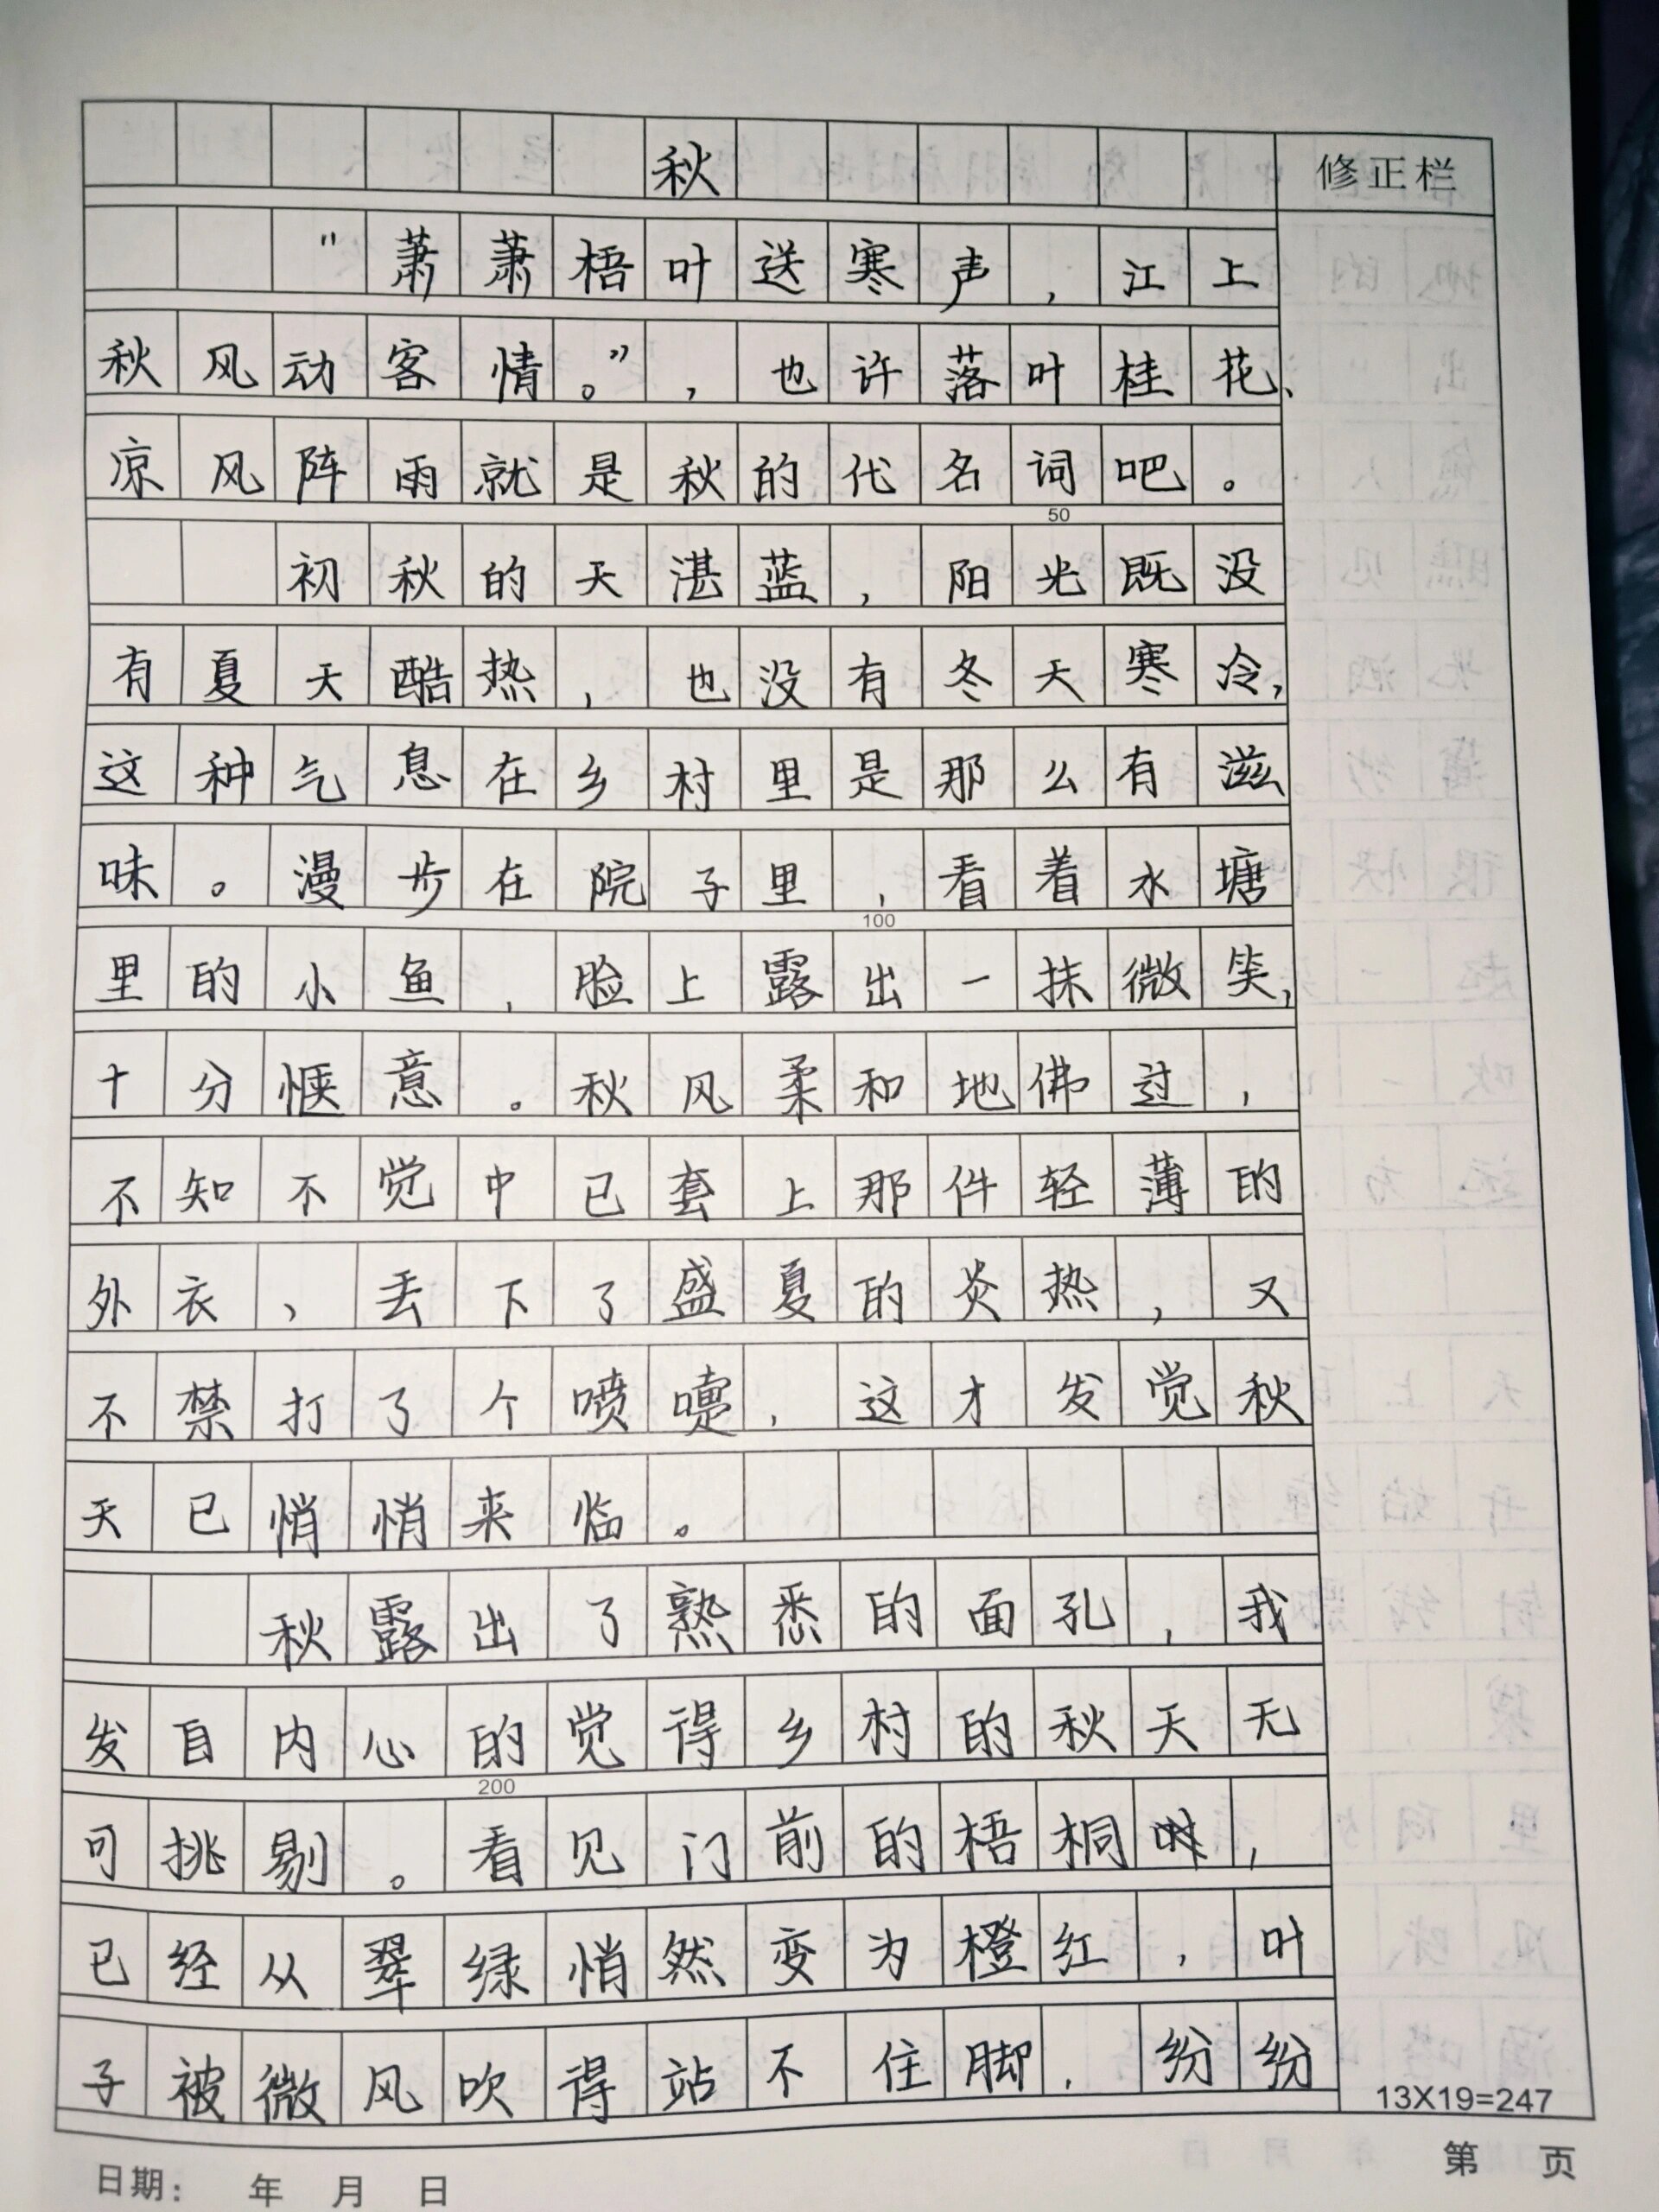 秋
修正栏
"萧萧梧叶送寒声,江上
秋风动客情。”,也许落叶桂花、
凉风阵雨就是秋的代名词吧。
50
初秋的天湛蓝,阳光既没
有夏天酷热,也没有冬天寒冷,
这种气息在乡村里是那么有滋
味。漫步在院子里,看着水塘
100
里的小鱼,脸上露出一抹微笑,
十分惬意。秋风柔和地佛过,
不知不觉中已套上那件轻薄的
外衣,丢下了盛夏的炎热,又
不禁打了个喷嚏,这才发觉秋
天已悄悄来临。
秋露出了熟悉的面孔,我
发自内心的觉得乡村的秋天无
200
可挑剔。看见门前的梧桐,
已经从翠绿悄然变为橙红,叶
子被微风吹得站不住脚,纷纷
13X19=247
第 页
日期: 年 月 日